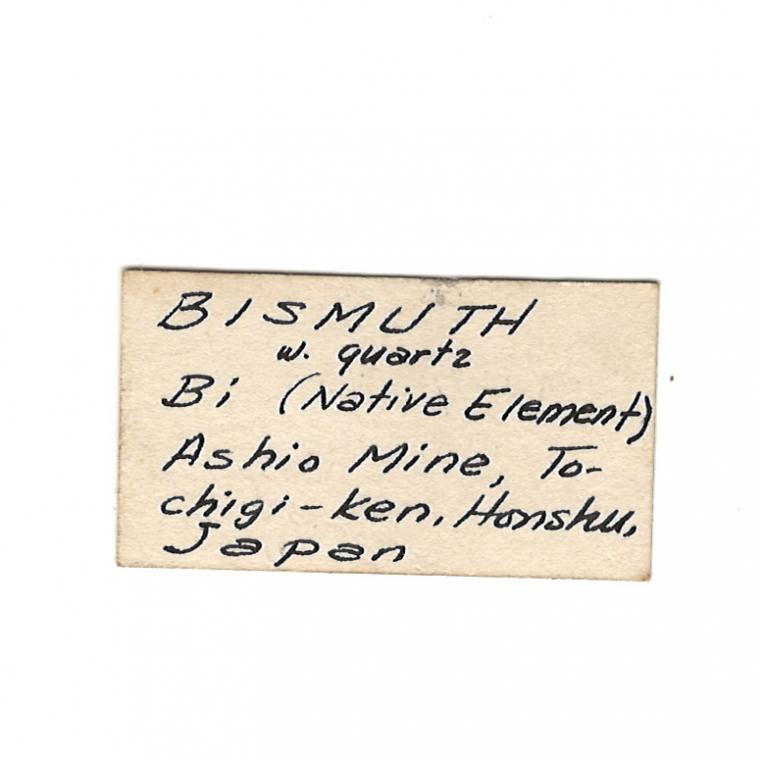 BISMUTH
w. quartz
Bi (Native Element)
Ashio Mine, To-
chigi-ken, Honshu,
Japan